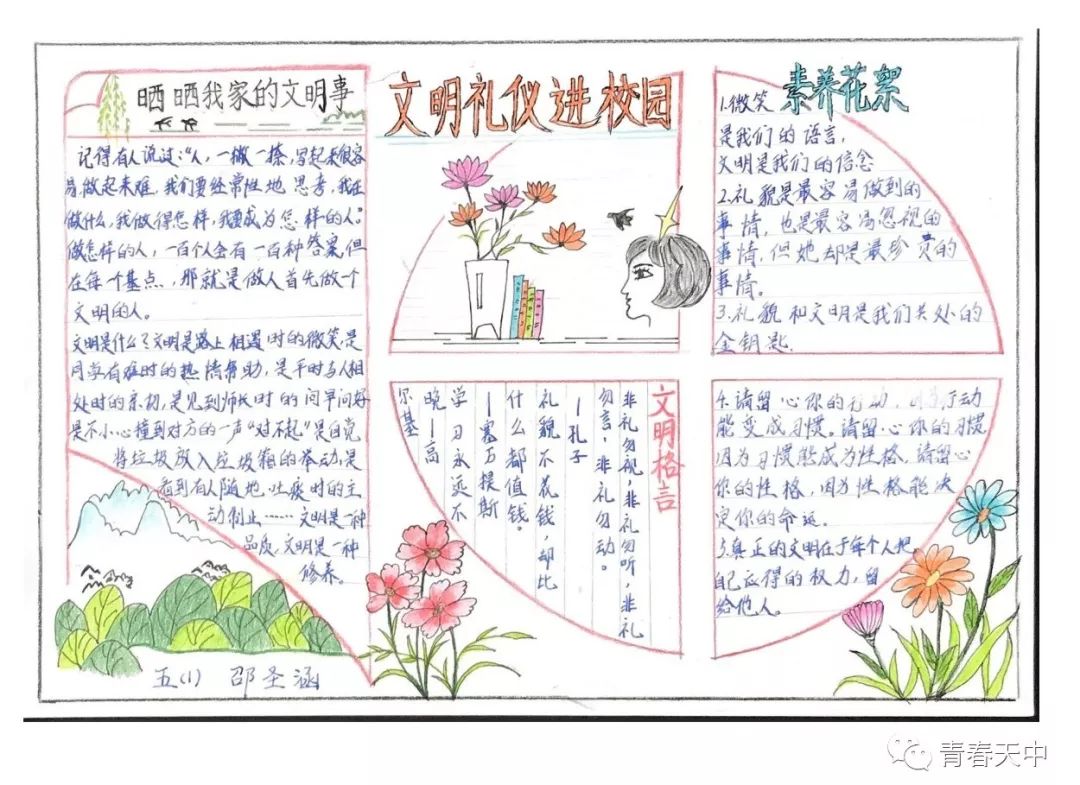 晒晒我家的文明事
记得有人说过:"人,一撇一捺,写起来很容
易,做起来难,我们要经常性地思考,我在
做什么,我做得怎样,我要成为怎样的人。"
做怎样的人,一百个人会有一百种答案,但
在每一个基点,那就是做人首先做一个
文明的人。
文明是什么?文明是路上相遇时的微笑,是
同学有难时的热情帮助,是平时与人相
处时的亲切,是见到师长时的问早问好
是不小心撞到对方的一声"对不起"是自觉
将垃圾放入垃圾箱的举动,是
看到有人随地吐痰时的主
动制止……文明是一种
品质,文明是一种
修养。
五(1) 邵圣涵
文明礼仪进校园
文明格言
非礼勿视,非礼勿听,非礼
勿言,非礼勿动。
—孔子
礼貌不花钱,却比
什么都值钱。
—塞万提斯
学习永远不
晚—高
尔基
素养花絮
1.微笑
是我们的语言,
文明是我们的信念
2.礼貌是最容易做到的
事情,也是最容易忽视的
事情,但她却是最珍贵的
事情。
3.礼貌和文明是我们共处的
金钥匙.
4.请留心你的行动,行动
能变成习惯。请留心你的习惯
因为习惯能成为性格,请留心
你的性格,因为性格能决
定你的命运。
5.真正的文明在于每个人把
自己应得的权力,留
给他人。
青春天中